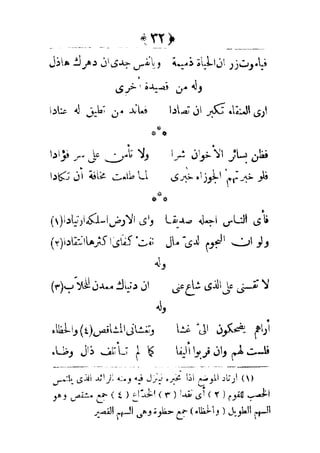 ﴿ ٣٢ ﴾
فياموت زر ان الحياة ذميمة ويانفس جدى ان دهرك هاذل
وله من قصيدة اخرى
ارى العنقاء تكبر ان تصادا فعاند من تطيق له عنادا
***
فظن بسائر الأخوان شرا ولا تأمن على سر فؤادا
فلو خبرتهم الجوزاء خبرى لما طلعت مخافة أن تكادا
***
فأى الناس اجعله صديقا واى الارض اسلكه ارتيادا (١)
ولو ان النجوم لدى مال نفت كفاى اكثرها انتقادا (٢)
وله
لا تقسنى على الذى شاع عنى ان دنياك معدن للخلاب (٣)
وله
أراهم يضحكون الىّ غشا وتغشانى المشاقص (٤) والحظاء
فلست لهم وان قربوا أليفا كما لم تأتلف ذال وظاء
(١) ارتاد الموضع اذا تخيره لينزل فيه ومنه الرائد الذى يلتمس
الخصب للقوم (٢) أى نقدا (٣) الخداع (٤) جمع مشقص وهو
السهم الطويل (والحظاء) جمع حظوة وهى السهم القصير